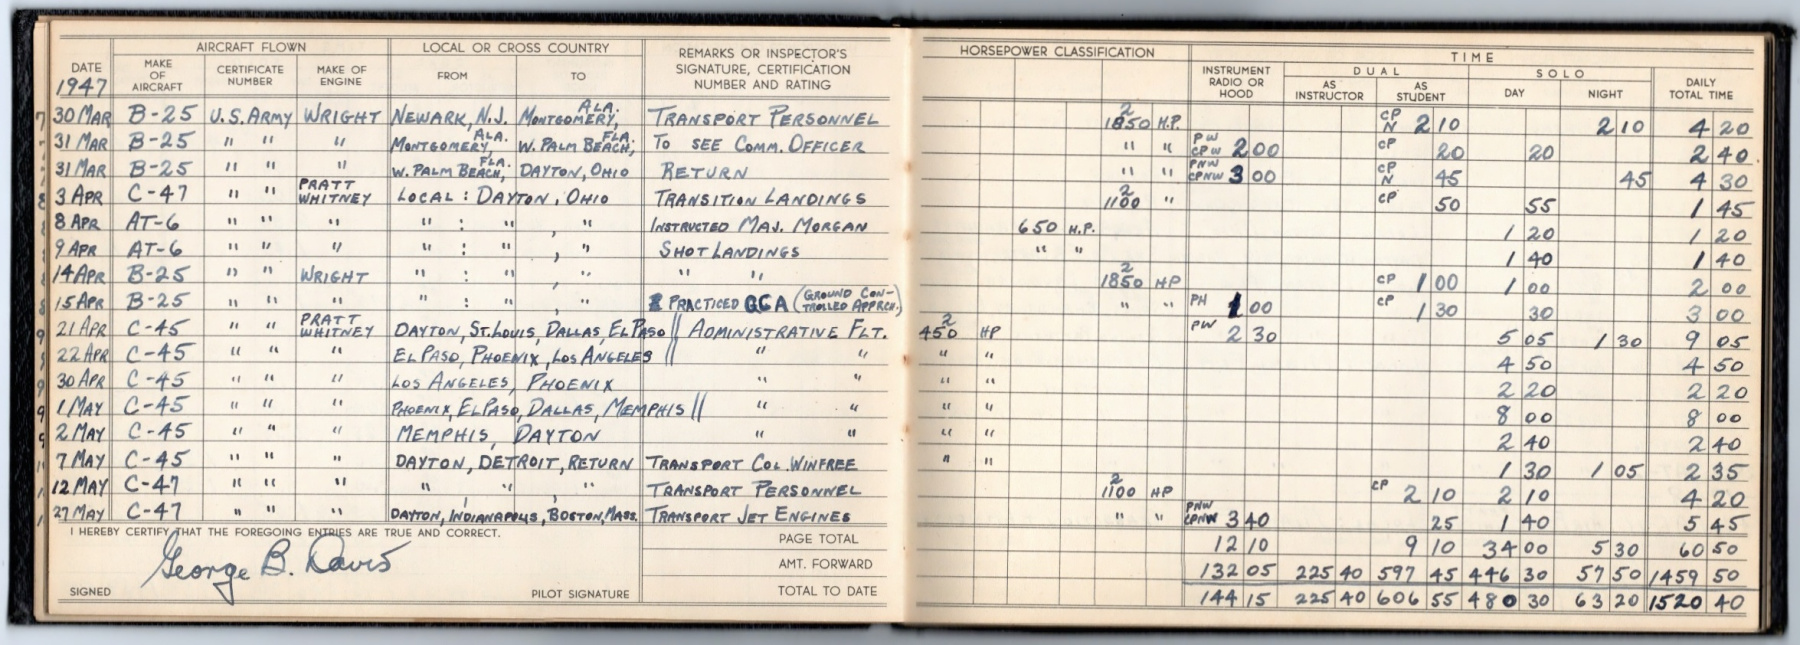 AIRCRAFT FLOWN LOCAL OR CROSS COUNTRY REMARKS OR INSPECTOR'S SIGNATURE, CERTIFICATION NUMBER AND RATING HORSEPOWER CLASSIFICATION TIME
DATE 1947 MAKE OF AIRCRAFT CERTIFICATE NUMBER MAKE OF ENGINE FROM TO INSTRUMENT RADIO OR HOOD DUAL AS INSTRUCTOR AS STUDENT SOLO DAY NIGHT DAILY TOTAL TIME
30 MAR B-25 U.S. ARMY WRIGHT NEWARK, N.J. MONTGOMERY, ALA. TRANSPORT PERSONNEL 2 1850 H.P. CP N 2 10 2 10 4 20
31 MAR B-25 " " " MONTGOMERY, ALA. W. PALM BEACH, FLA. TO SEE COMM. OFFICER " " PW CPW 2 00 CP 20 20 2 40
31 MAR B-25 " " " W. PALM BEACH, FLA. DAYTON, OHIO RETURN " " PNW CPNW 3 00 CP N 45 45 4 30
3 APR C-47 " " PRATT WHITNEY LOCAL : DAYTON, OHIO TRANSITION LANDINGS 2 1100 " CP 50 55 1 45
8 APR AT-6 " " " " : " , " INSTRUCTED MAJ. MORGAN 650 H.P. 1 20 1 20
9 APR AT-6 " " " " : " , " SHOT LANDINGS " " 1 40 1 40
14 APR B-25 " " WRIGHT " : " , " " " 2 1850 HP CP 1 00 1 00 2 00
15 APR B-25 " " " " : " , " PRACTICED GCA (GROUND CONTROLLED APPRCH.) " " PH 1 00 CP 1 30 30 3 00
21 APR C-45 " " PRATT WHITNEY DAYTON, ST. LOUIS, DALLAS, EL PASO // ADMINISTRATIVE FLT. 2 450 HP PW 2 30 5 05 1 30 9 05
22 APR C-45 " " " EL PASO, PHOENIX, LOS ANGELES // " " " " 4 50 4 50
30 APR C-45 " " " LOS ANGELES, PHOENIX " " " " 2 20 2 20
1 MAY C-45 " " " PHOENIX, EL PASO, DALLAS, MEMPHIS // " " " " 8 00 8 00
2 MAY C-45 " " " MEMPHIS, DAYTON " " " " 2 40 2 40
7 MAY C-45 " " " DAYTON, DETROIT, RETURN TRANSPORT COL. WINFREE " " 1 30 1 05 2 35
12 MAY C-47 " " " " " , " TRANSPORT PERSONNEL 2 1100 HP CP 2 10 2 10 4 20
27 MAY C-47 " " " DAYTON, INDIANAPOLIS, BOSTON, MASS. TRANSPORT JET ENGINES " " PNW CPNW 3 40 25 1 40 5 45
I HEREBY CERTIFY THAT THE FOREGOING ENTRIES ARE TRUE AND CORRECT. PAGE TOTAL 12 10 9 10 34 00 5 30 60 50
George B. Davis AMT. FORWARD 132 05 225 40 597 45 446 30 57 50 1459 50
SIGNED PILOT SIGNATURE TOTAL TO DATE 144 15 225 40 606 55 480 30 63 20 1520 40